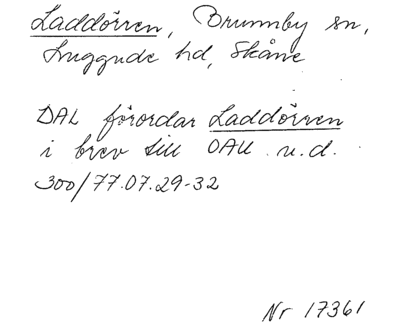 Laddörren, Brunnby sn,
Luggude hd, Skåne
DAL förordar Laddörren
i brev till OAU n.d.
300/77.07.29-32
Nr 17361